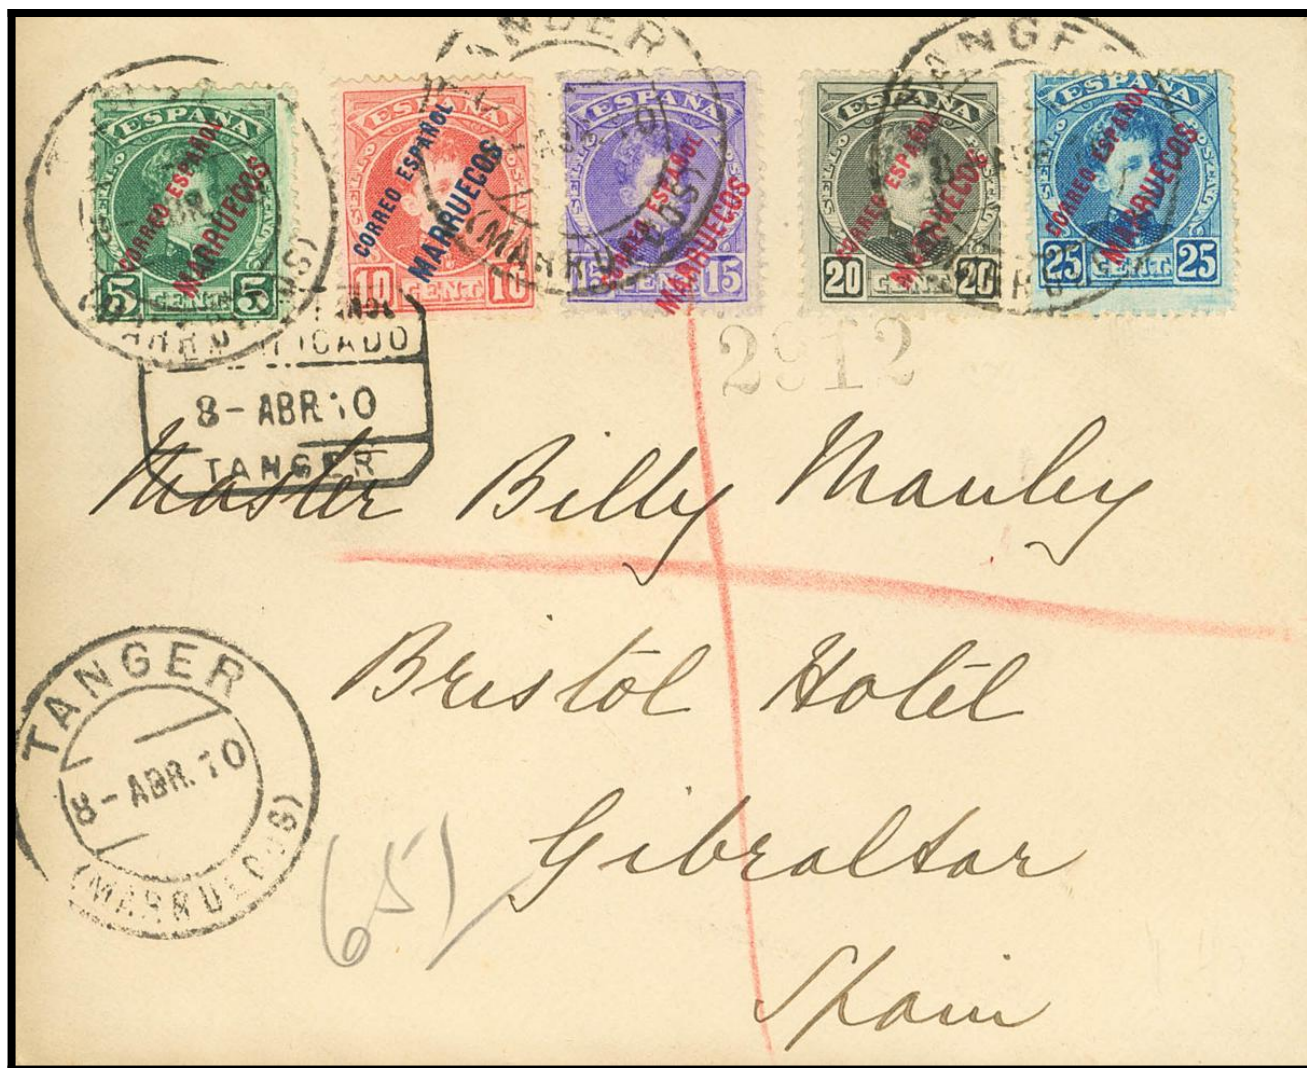 TANGER
TANGER
ESPAÑA
CORREO ESPAÑOL
MARRUECOS
5 CENT. 5
(MARRUECOS)
ESPAÑA
CORREO ESPAÑOL
MARRUECOS
10 CENT. 10
ESPAÑA
CORREO ESPAÑOL
MARRUECOS
15 CENT. 15
(MARRUECOS)
ESPAÑA
CORREO ESPAÑOL
MARRUECOS
20 CENT. 20
ESPAÑA
CORREO ESPAÑOL
MARRUECOS
25 CENT. 25
8-ABR.10
TANGER
2912
Master Billy Manley
Bristol Hotel
Gibraltar
Spain
TANGER
8-ABR.10
(MARRUECOS)